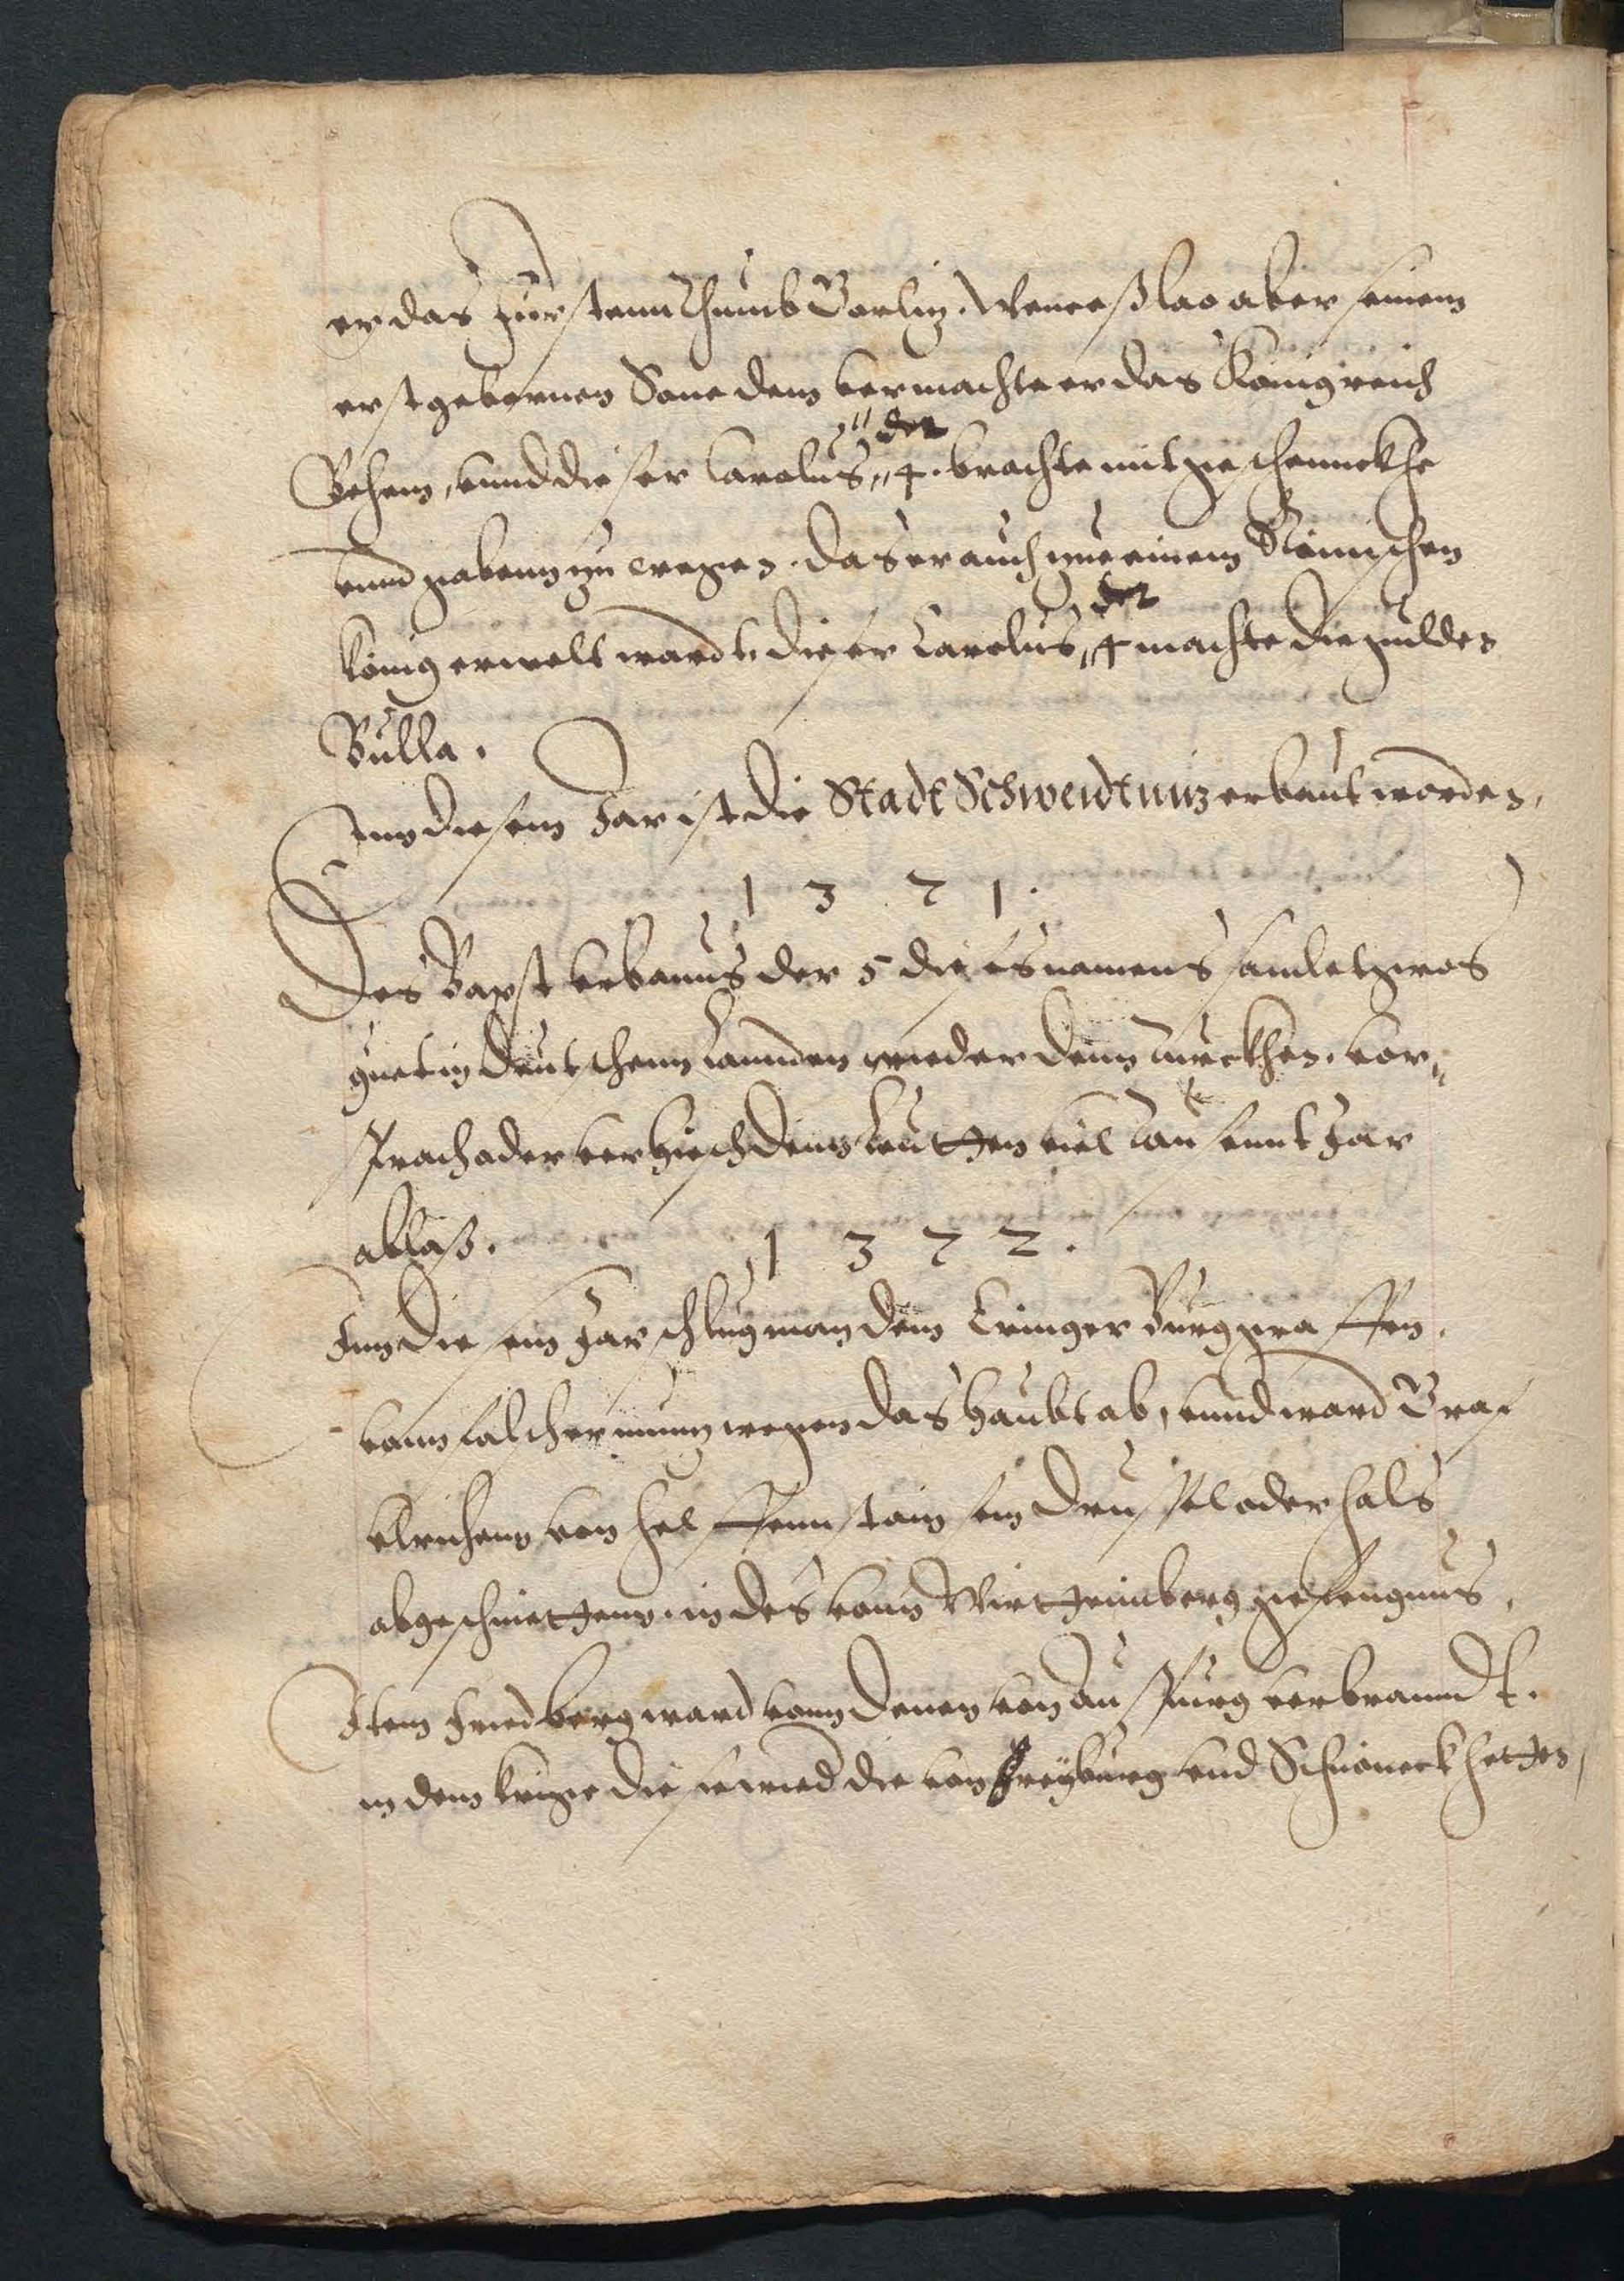 er das Fürstenn Thumb Gorlig. Wenceßlao aber seinem
erstgebornen Sone dem vermachte er das Konigreich
Behem, vnnd dieser Carolus der 4. brachte mit geschennckhe
vnnd gabenn zu wegen. das er auch zue einem Römischen
König erwelt wardt. dieser Carolus der 4 machte die gulden
Bulla.
Inn diesem Jar ist die Stadt Schweidtnitz erbaut worden,
1 3 7 1.
Der Bapst vrbanus der 5 dieses namens samlet gros
guet in deutschenn Lannden wieder denn Turckhen. vor„
sprach oder verhiesch denn Leuttten viel Tausennt Jar
ablaß.
1 3 7 2.
Inn diesem Jar schlug man dem Eringer Burggraffen.
vonn falscher muntz wegen das Haubt ab, vnnd ward Graf
vlrichenn von Helffennstain sein drussel oder hals
abgeschnittenn in des vonn Wirttemberg gefengnus,
Item Friedberg ward vonn denen von Auspurg verbranndt.
in dem kriege die sie wied die von Freyburg vnd Schöneck hetten,